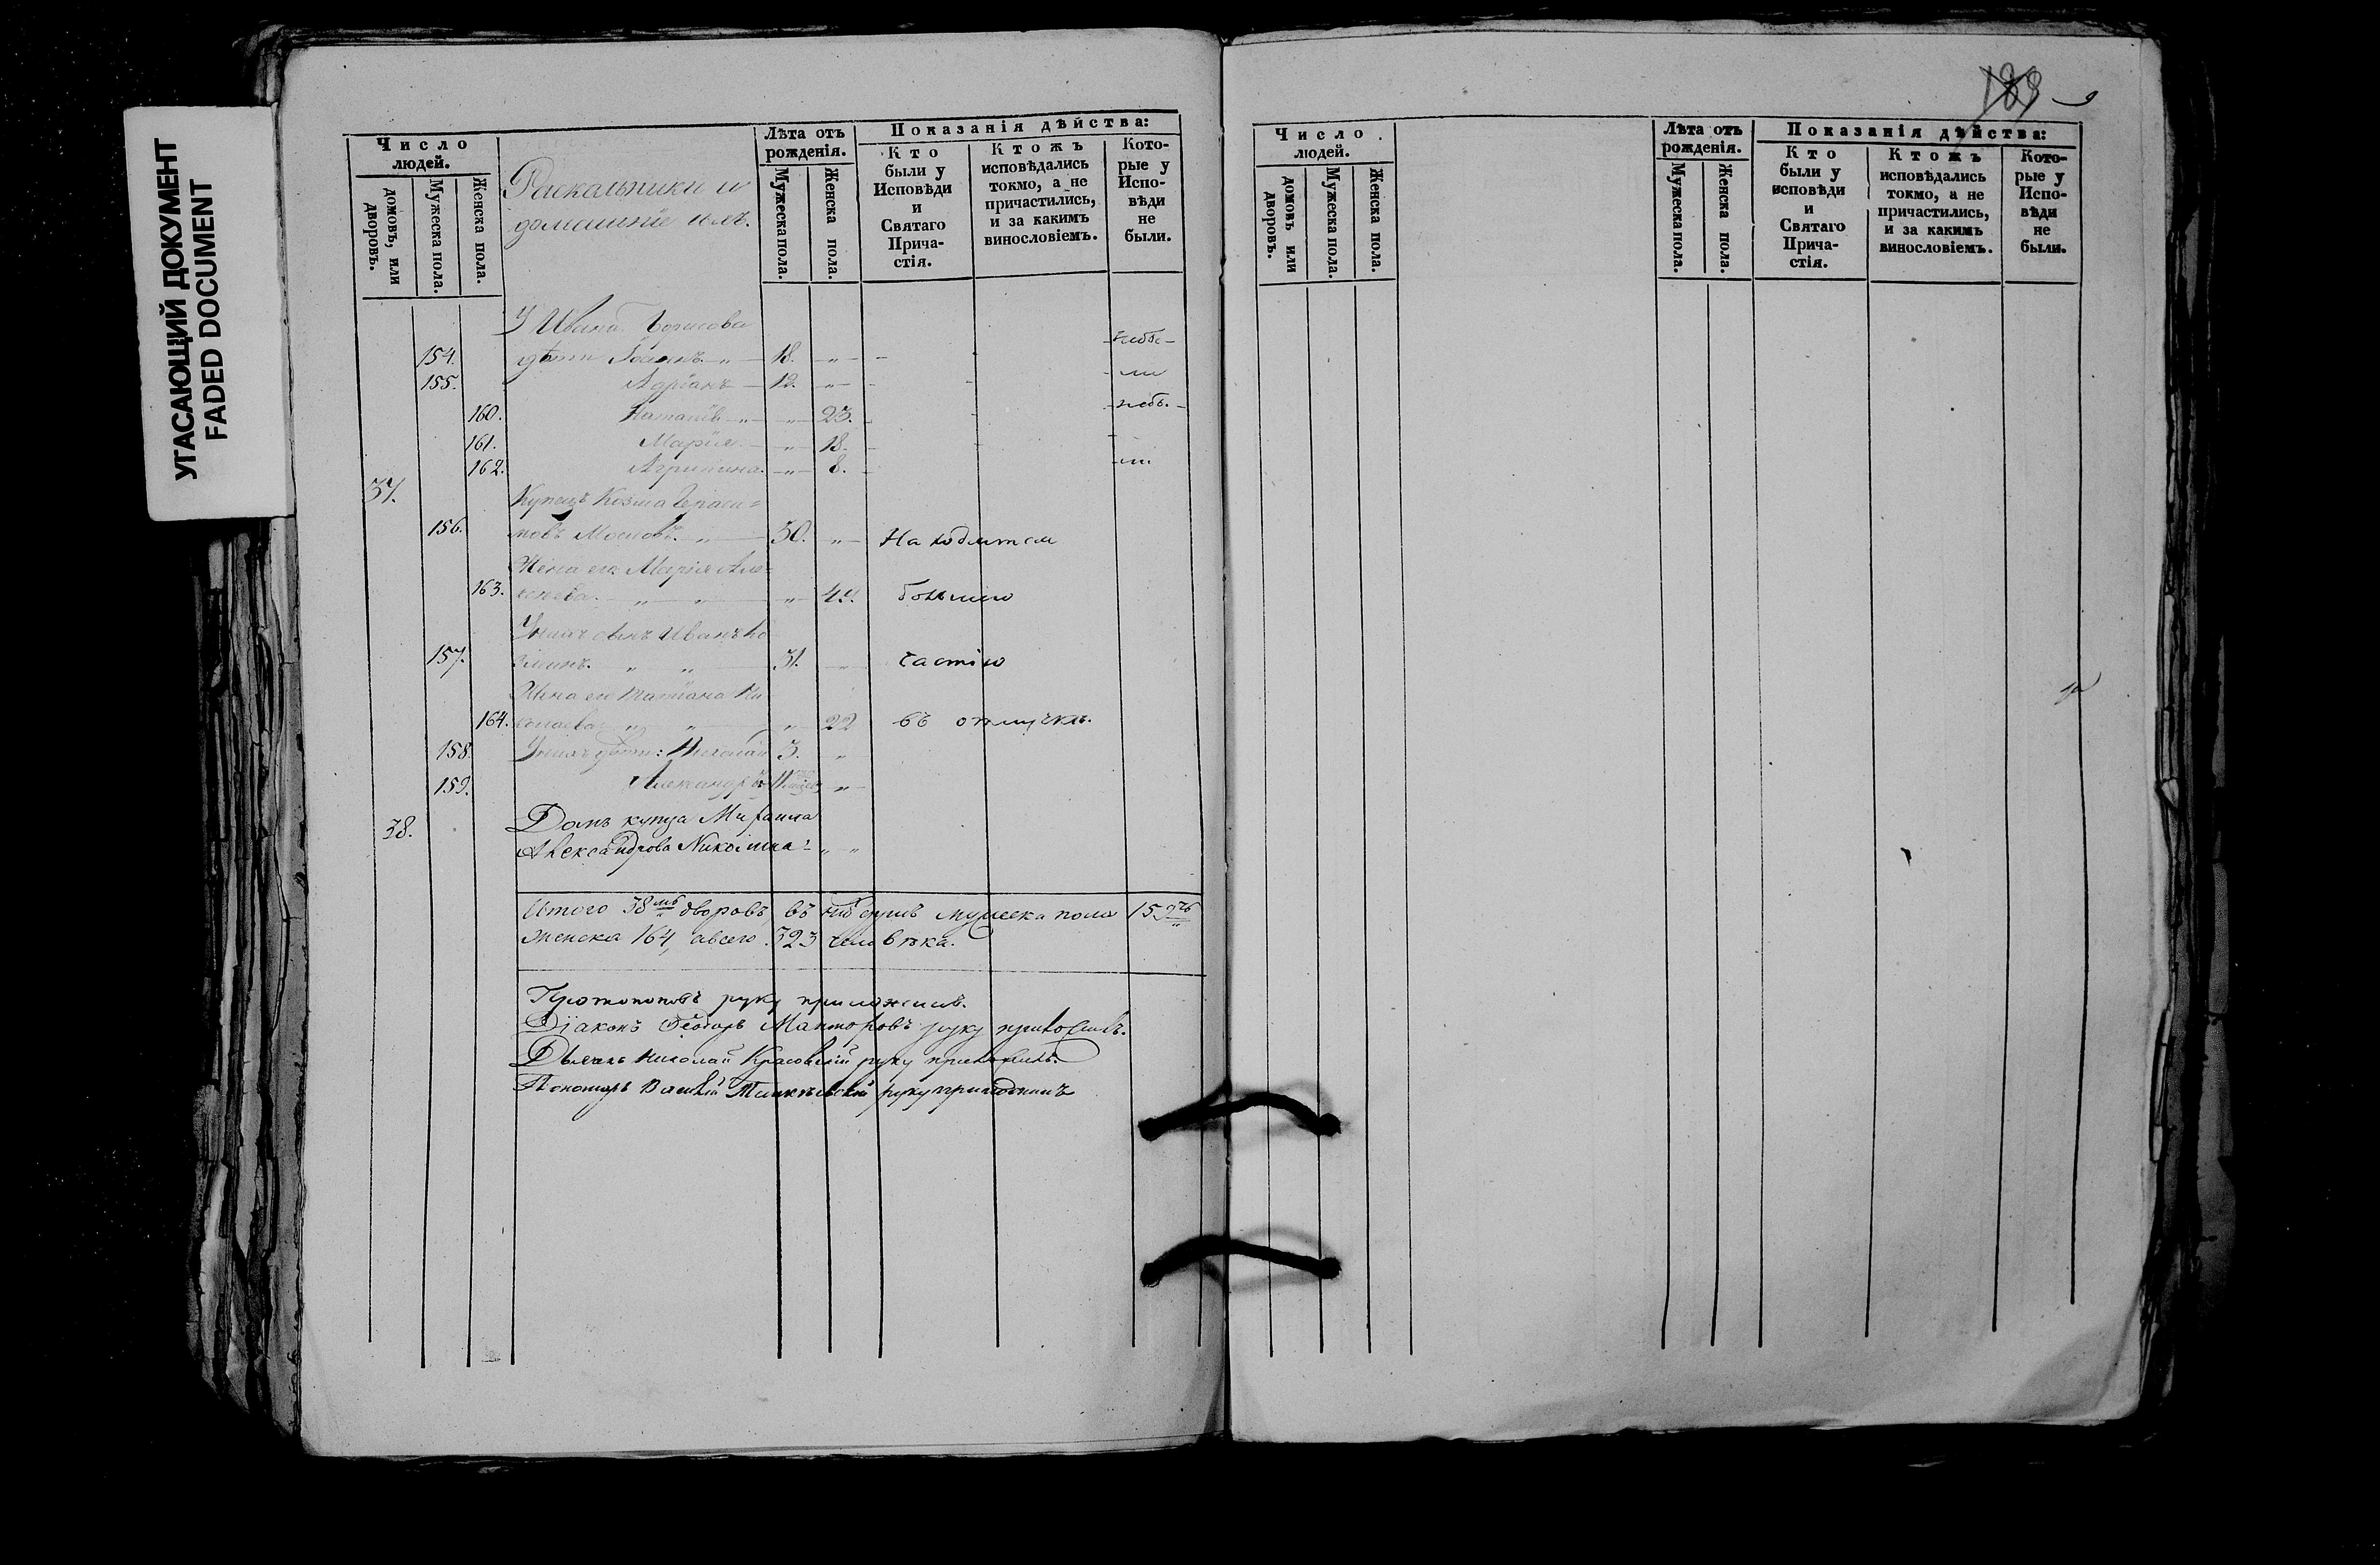 УГАСАЮЩИЙ ДОКУМЕНТ
FADED DOCUMENT
Число людей.
домовъ, или дворовъ.
Мужеска пола.
Женска пола.
Раскольники и
домашніе ихъ.
Лѣта отъ рожденія.
Мужеска пола.
Женска пола.
Показанія дѣйства:
Кто были у Исповѣди и Святаго Прича-стія.
Ктожъ исповѣдались токмо, а не причастились, и за какимъ винословіемъ.
Кото-рые у Испо-вѣди не были.
У Ивана Борисова
154. дѣти 18. небы-
155. Адріанъ 12. ли
160. Наталія 23. небы-
161. Марія 18.
162. Агрипина. 8. ли
37. Купецъ Козма Гераси-
156. мовъ 50. Находится
Жена его Марія Але-
163. ксѣева 49. большею
У нихъ сынъ Иванъ Ко
157. зминъ. 31. частію
Жена его Татіана Ни
164. колаева 22 въ отлучкѣ.
158. У нихъ дѣти: Николай 3.
159. Александръ
38. Домъ купца Михаила
Александрова
Итого 38мь дворовъ, въ нихъ душъ мужеска пола 159ть
женска 164, а всего 323 человѣка.
Протопоповъ руку приложилъ.
Діаконъ Ѳеодоръ руку приложилъ.
Дьячекъ Николай Красовскій руку приложилъ.
Пономарь руку приложилъ
189
Число людей.
домовъ или дворовъ.
Мужеска пола.
Женска пола.
Лѣта отъ рожденія.
Мужеска пола.
Женска пола.
Показанія дѣйства:
Кто были у исповѣди и Святаго Прича-стія.
Ктожъ исповѣдались токмо, а не причастились, и за какимъ винословіемъ.
Кото-рые у Испо-вѣди не были.